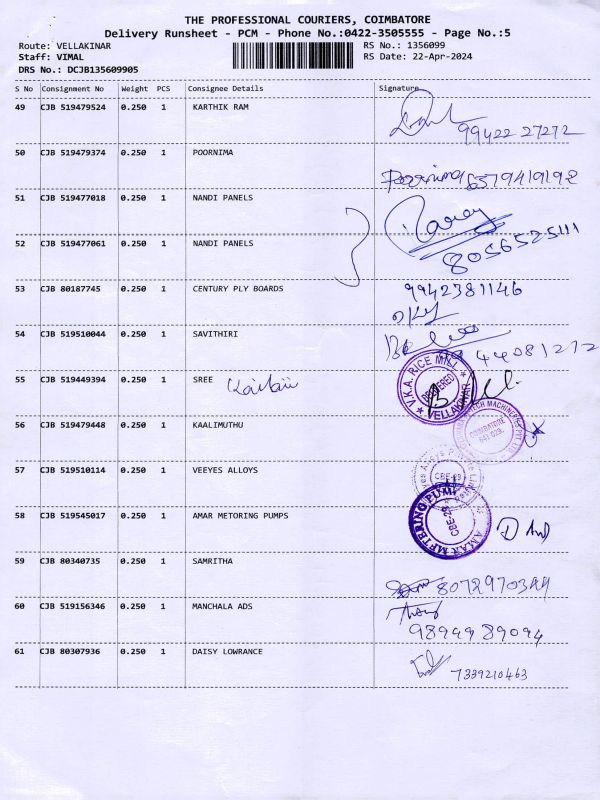 THE PROFESSIONAL COURIERS, COIMBATORE
Delivery Runsheet - PCM - Phone No.:0422-3505555 - Page No.:5
Route: VELLAKINAR RS No.: 1356099
Staff: VIMAL RS Date: 22-Apr-2024
DRS No.: DCJB135609905
S No Consignment No Weight PCS Consignee Details Signature
49 CJB 519479524 0.250 1 KARTHIK RAM
99422 27272
50 CJB 519479374 0.250 1 POORNIMA
Poornima 6379419192
51 CJB 519477018 0.250 1 NANDI PANELS
52 CJB 519477061 0.250 1 NANDI PANELS
8056525111
53 CJB 80187745 0.250 1 CENTURY PLY BOARDS 9942381146
54 CJB 519510044 0.250 1 SAVITHIRI
44081272
V.K.A. RICE MILL
DELIVERED
VELLAKINAR
55 CJB 519449394 0.250 1 SREE
COIMBATORE
641 029.
56 CJB 519479448 0.250 1 KAALIMUTHU
57 CJB 519510114 0.250 1 VEEYES ALLOYS
CBE-29
58 CJB 519545017 0.250 1 AMAR METORING PUMPS
AMAR METERING PUMP
CBE-29
59 CJB 80340735 0.250 1 SAMRITHA
60 CJB 519156346 0.250 1 MANCHALA ADS
9894989094
61 CJB 80307936 0.250 1 DAISY LOWRANCE
7339210463